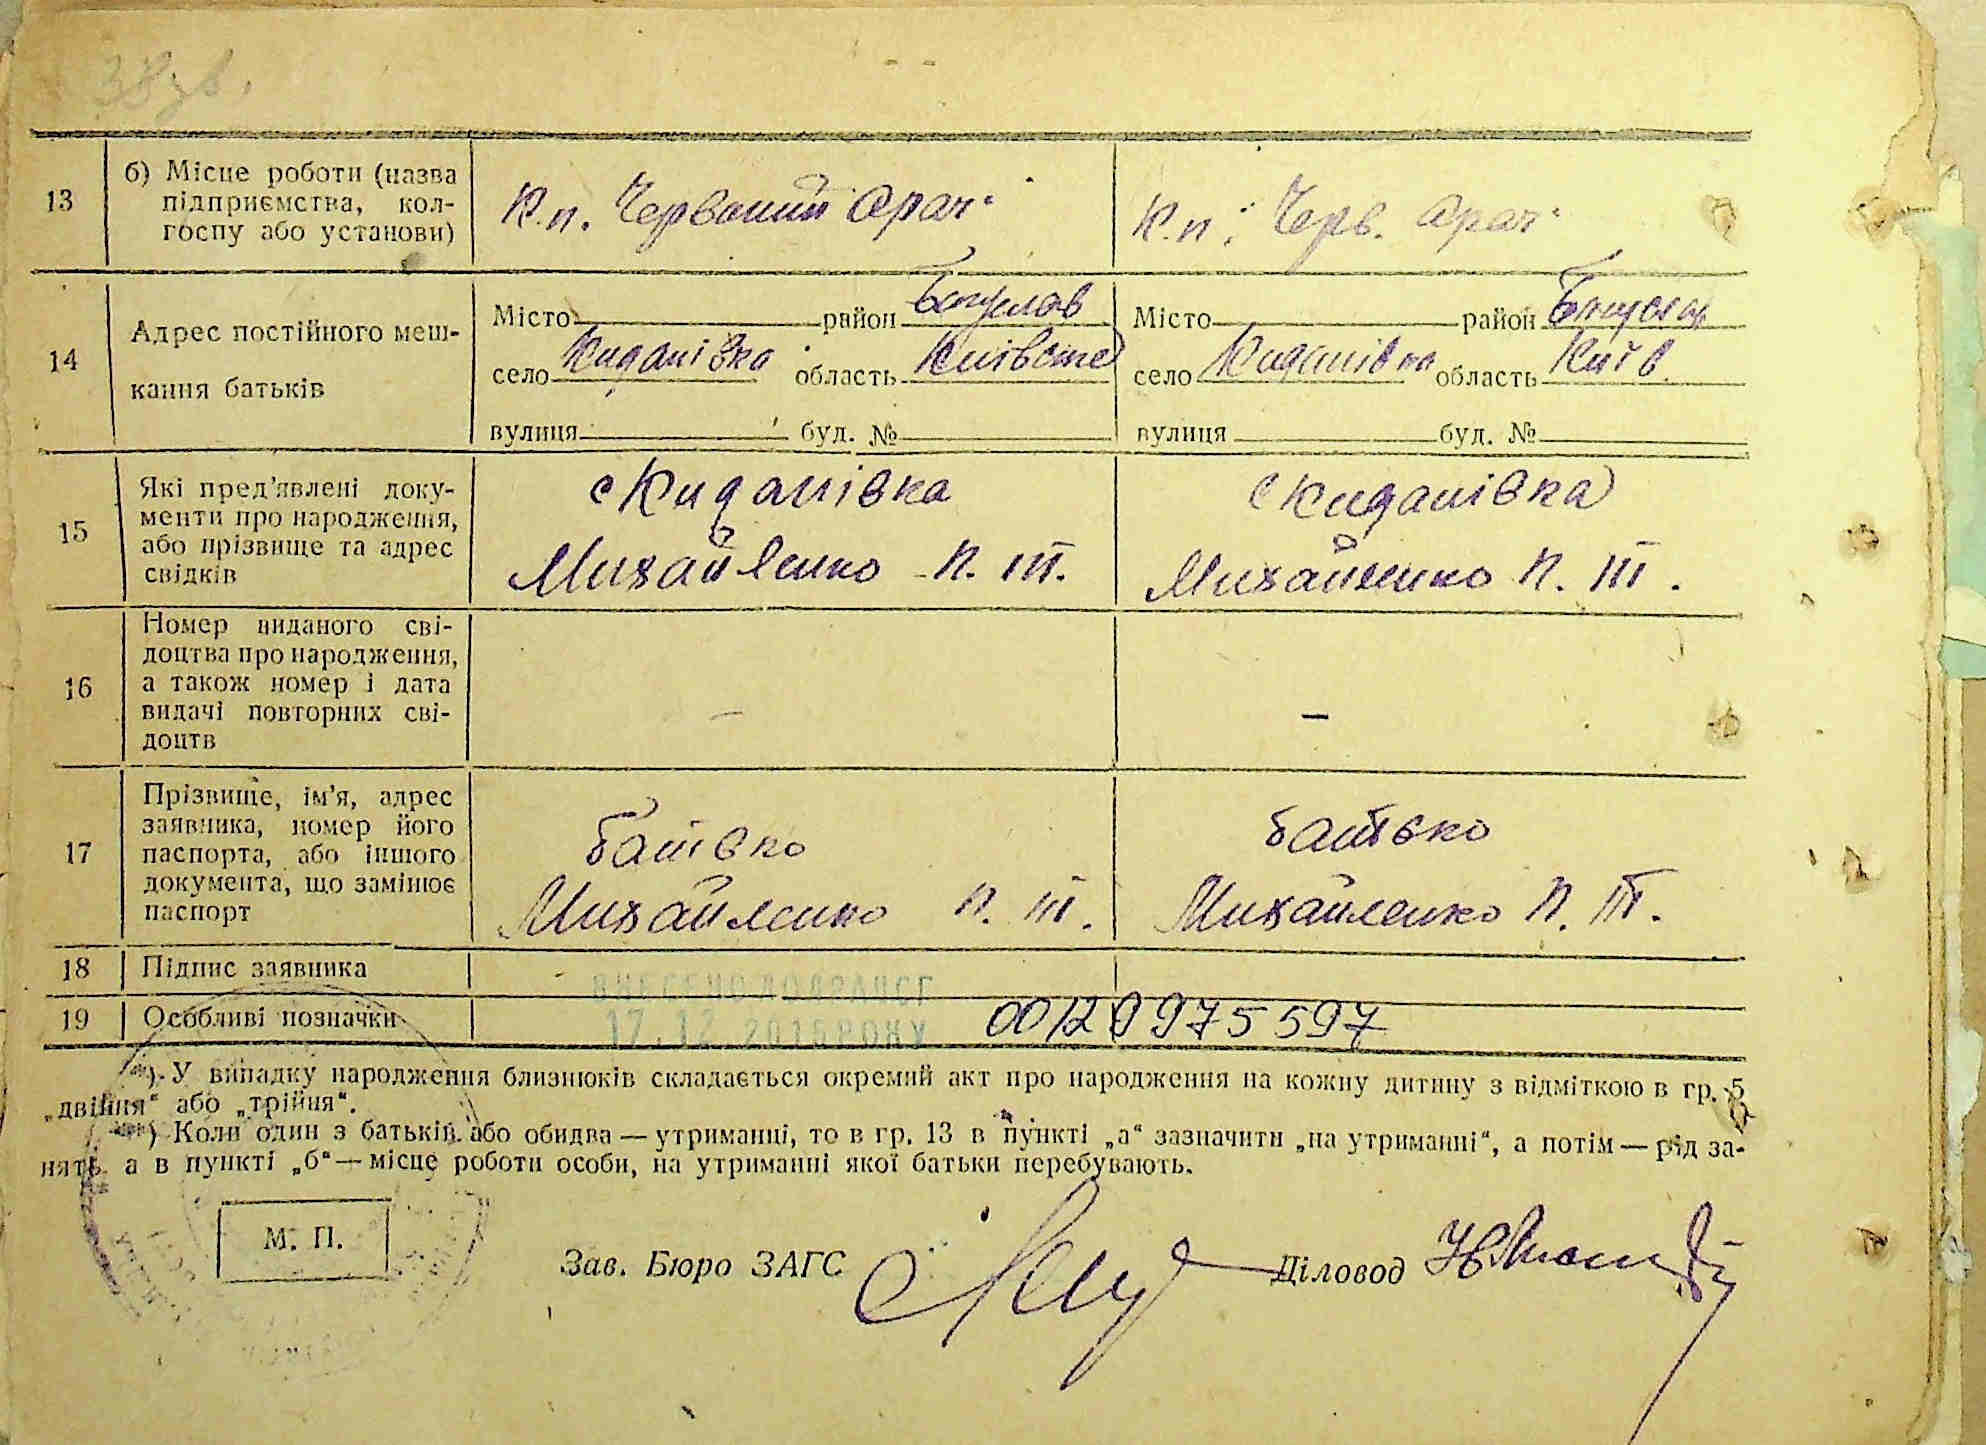 13
б) Місце роботи (назва
підприємства, кол-
госпу або установи)
К.п. Червоний Орач
К.п. Черв. Орач
14
Адрес постійного меш-
кання батьків
Місто район Богуслав
село Киданівка область Київське
вулиця буд. №
Місто район Богуслав
село Киданівка область Київ.
вулиця буд. №
15
Які пред’явлені доку-
менти про народження,
або прізвище та адрес
свідків
с Киданівка
Михайленко П. Т.
с Киданівка
Михайленко П. Т.
16
Номер виданого сві-
доцтва про народження,
а також номер і дата
видачі повторних сві-
доцтв
—
—
17
Прізвище, ім’я, адрес
заявника, номер його
паспорта, або іншого
документа, що замінює
паспорт
батько
Михайленко П. Т.
батько
Михайленко П. Т.
18 Підпис заявника
ВНЕСЕНО ДО ДРАЦСГ
19 Особливі позначки
17.12.2015 РОКУ
00129975597
**). У випадку народження близнюків складається окремий акт про народження на кожну дитину з відміткою в гр. 5
„двійня“ або „трійня“.
***) Коли один з батьків або обидва — утриманці, то в гр. 13 в пункті „а“ зазначити „на утриманні“, а потім — рід за-
нять, а в пункті „б“ — місце роботи особи, на утриманні якої батьки перебувають.
М. П.
Зав. Бюро ЗАГС
Діловод